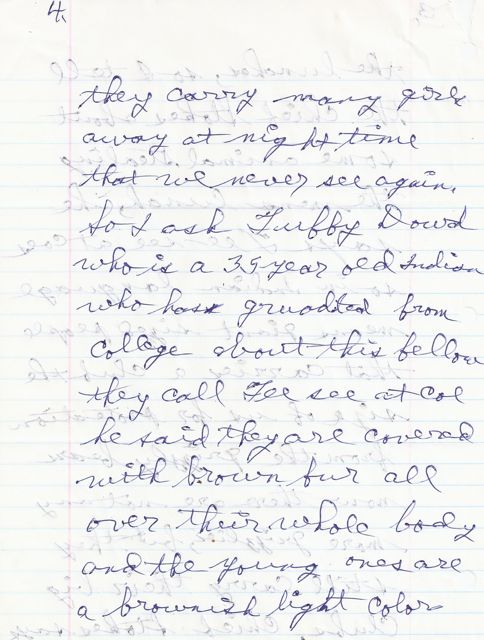 4.
they carry many girls
away at night time
that we never see again.
So I ask Tuffby Dowd
who is a 35 year old Indian
who has gruodted from
college about this fellow
they call Fee see at Coe
he said they are covered
with brown fur all
over their whole body
and the young ones are
a brownish light color